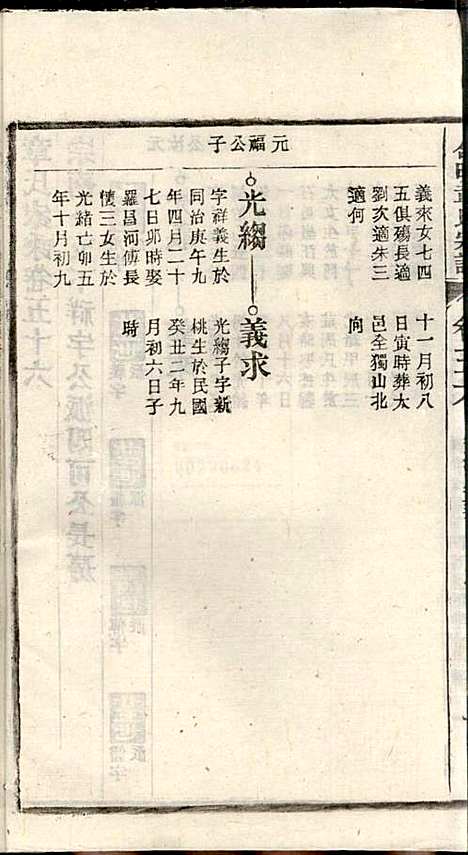 義來女七四
五俱殤長適
劉次適朱三
適何
十一月初八
日寅時葬太
邑全獨山北
向
元福公子
光縐
義求
字祥義生於
同治庚午九
年四月二十
七日卯時娶
羅昌河傅長
三女生於
光緒亡卯五
年十月初九
光縐子字新
桃生於民國
癸丑二年九
月初六日子
時